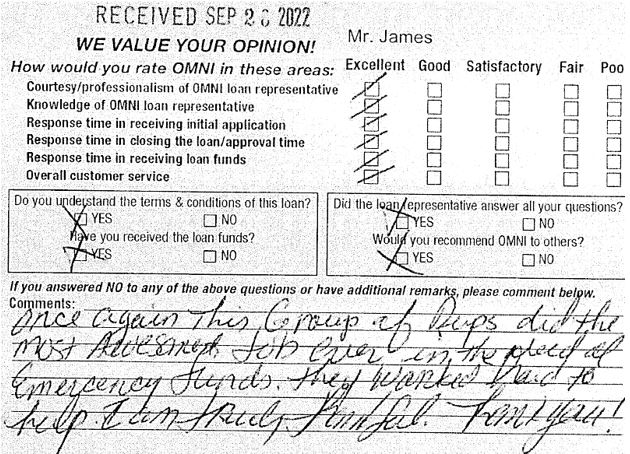 RECEIVED SEP 26 2022
WE VALUE YOUR OPINION!
Mr. James
How would you rate OMNI in these areas: Excellent Good Satisfactory Fair Poo
Courtesy/professionalism of OMNI loan representative
Knowledge of OMNI loan representative
Response time in receiving initial application
Response time in closing the loan/approval time
Response time in receiving loan funds
Overall customer service
Do you understand the terms & conditions of this loan?
YES NO
Have you received the loan funds?
YES NO
Did the loan representative answer all your questions?
YES NO
Would you recommend OMNI to others?
YES NO
If you answered NO to any of the above questions or have additional remarks, please comment below.
Comments:
Once again This Group of did the
most Awesomest Job ever in the need of
Emergency Funds. They worked hard to
help. I am truly Thankful. Thank you!